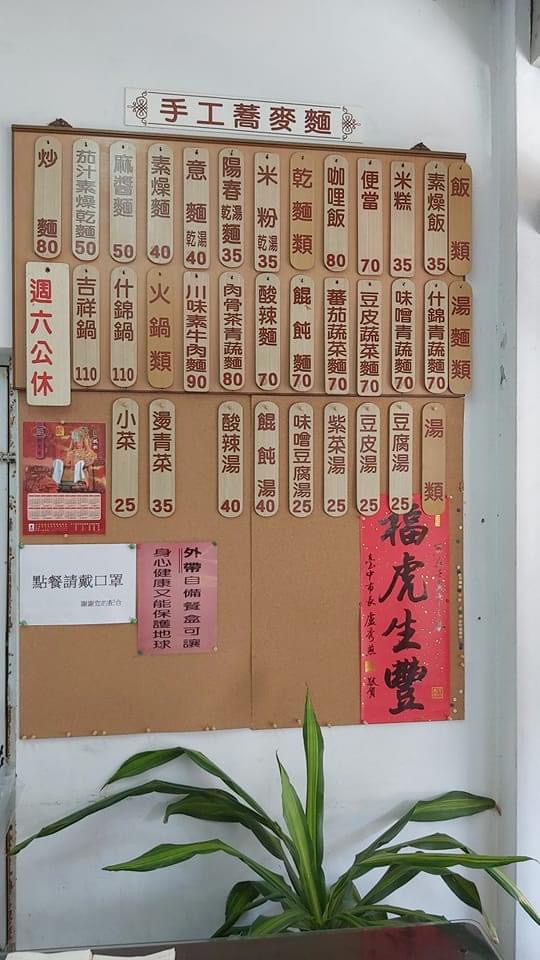 手工蕎麥麵
飯類
素燥飯 35
米糕 35
便當 70
咖哩飯 80
乾麵類
米粉 乾湯 35
陽春麵 乾湯 35
意麵 乾湯 40
素燥麵 40
麻醬麵 50
茄汁素燥乾麵 50
炒麵 80
湯麵類
什錦青蔬麵 70
味噌青蔬麵 70
豆皮蔬菜麵 70
蕃茄蔬菜麵 70
餛飩麵 70
酸辣麵 70
肉骨茶青蔬麵 80
川味素牛肉麵 90
火鍋類
什錦鍋 110
吉祥鍋 110
週六公休
湯類
豆腐湯 25
豆皮湯 25
紫菜湯 25
味噌豆腐湯 25
餛飩湯 40
酸辣湯 40
燙青菜 35
小菜 25
點餐請戴口罩
謝謝您的配合
外帶自備餐盒可讓
身心健康又能保護地球
福虎生豐
臺中市長盧秀燕 敬賀